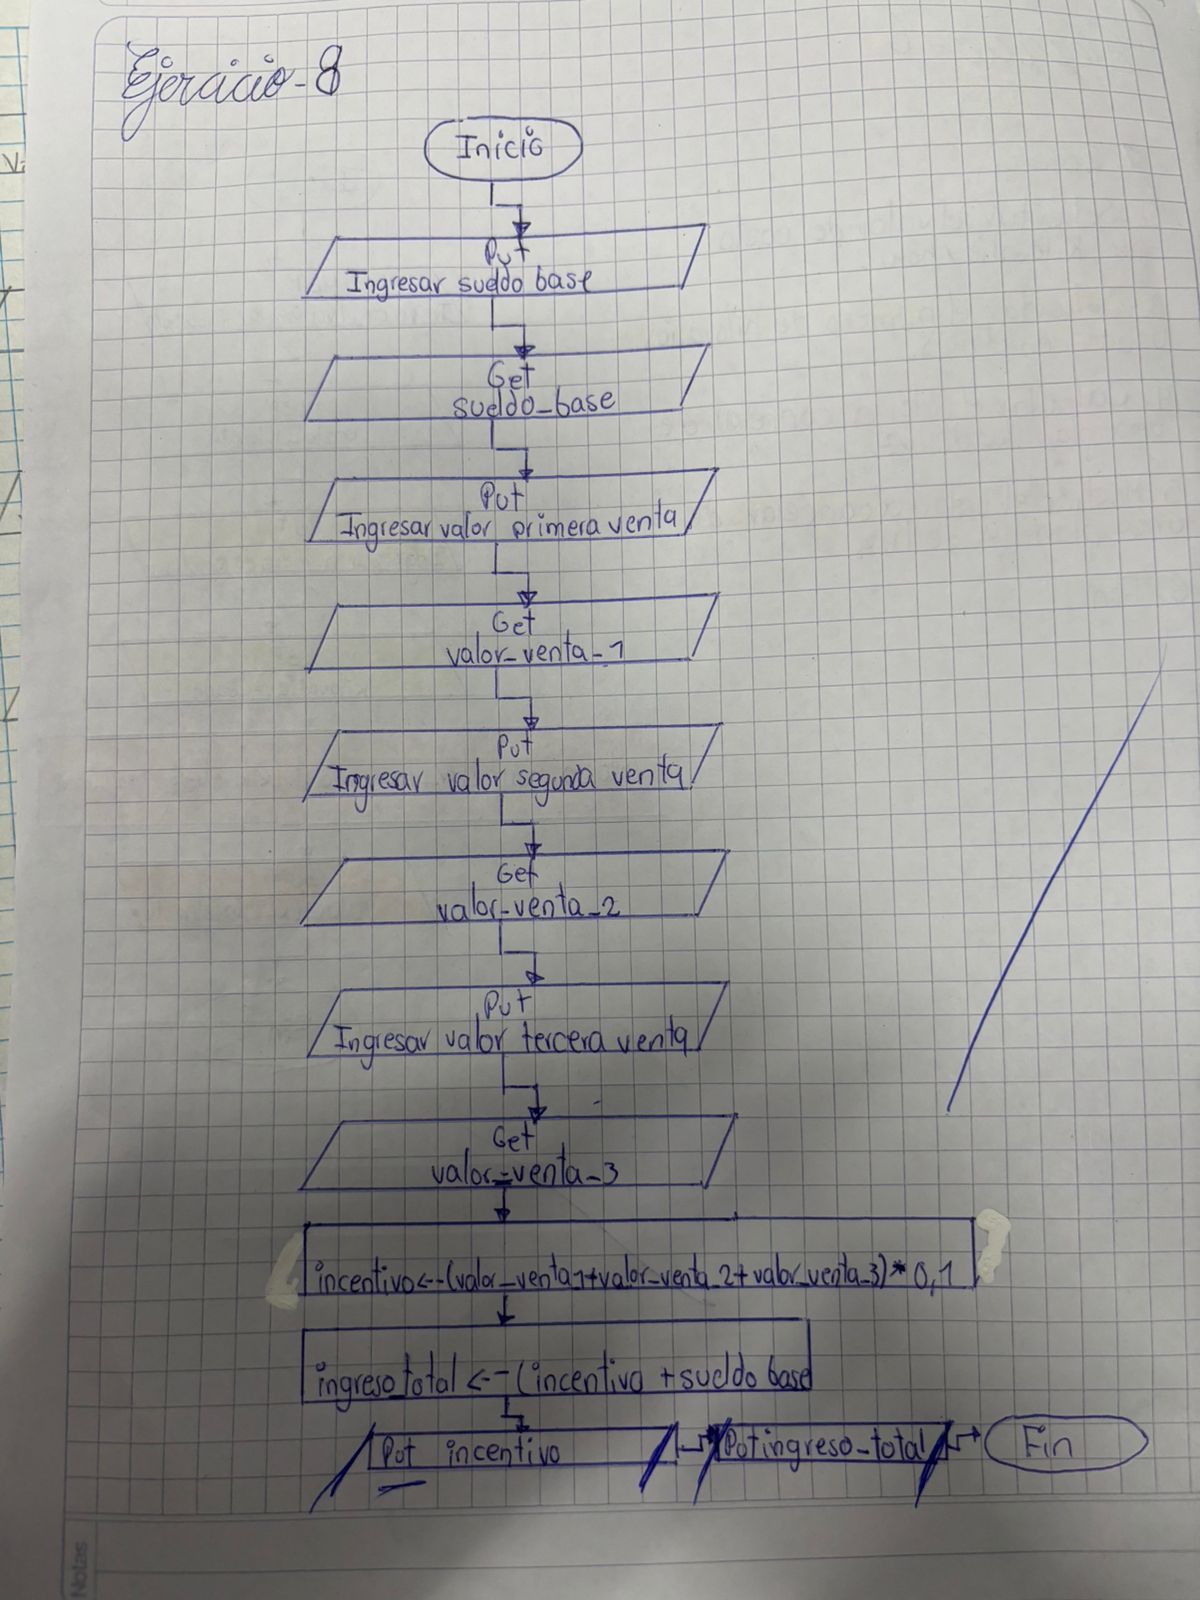 Ejercicio-8
Inicio
Put
Ingresar sueldo base
Get
sueldo_base
Put
Ingresar valor primera venta
Get
valor_venta_1
Put
Ingresar valor segunda venta
Get
valor_venta_2
Put
Ingresar valor tercera venta
Get
valor_venta_3
incentivo<--(valor_venta1+valor_venta_2+valor_venta_3)*0,1
ingreso_total <--(incentivo +sueldo base
Put incentivo
Put ingreso_total
Fin
Notas